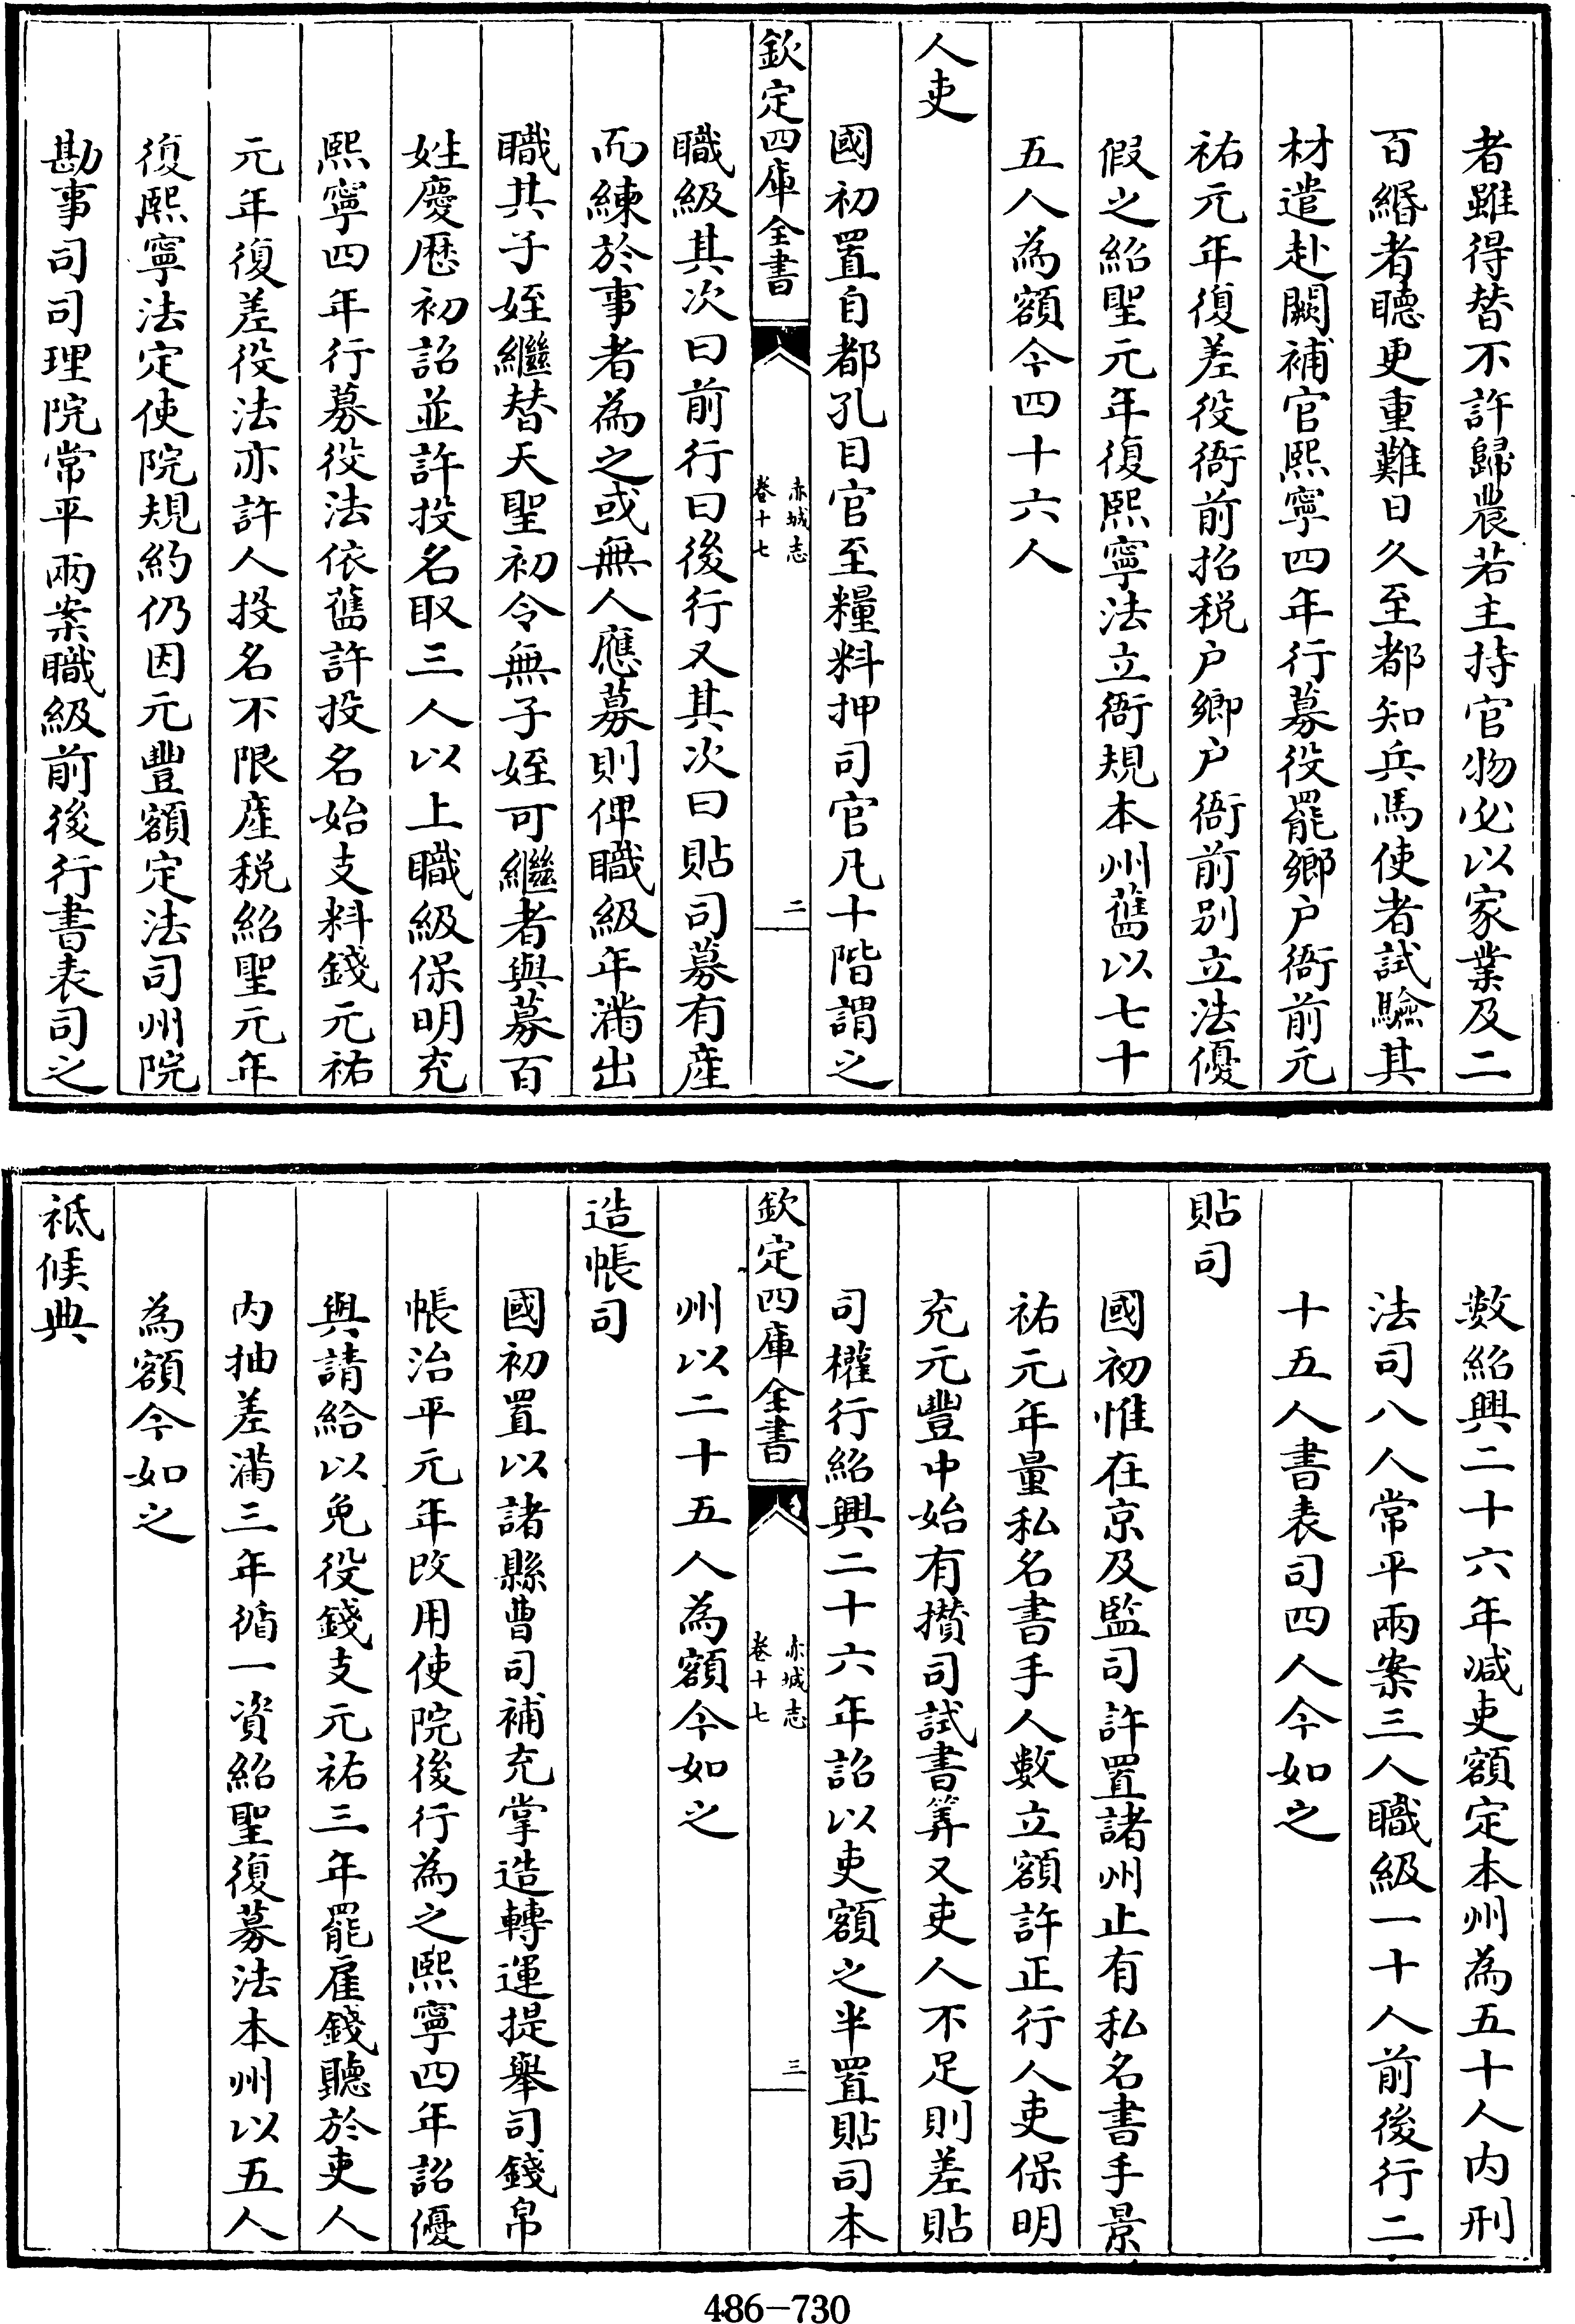 者雖得替不許歸農若主持官物必以家業及二
百緡者聽更重難日久至都知兵馬使者試驗其
材遣赴闕補官熙寧四年行募役罷鄉户衙前元
祐元年復差役衙前招税户鄉户衙前别立法優
假之紹聖元年復熙寧法立衙規本州舊以七十
五人為額今四十六人
人吏
國初置自都孔目官至糧料押司官凡十階謂之
欽定四庫全書
赤城志
卷十七
二
職級其次曰前行曰後行又其次曰貼司募有産
而練於事者為之或無人應募則俾職級年滿出
職其子姪繼替天聖初令無子姪可繼者與募百
姓慶歴初詔並許投名取三人以上職級保明充
熙寧四年行募役法依舊許投名始支料錢元祐
元年復差役法亦許人投名不限産税紹聖元年
復熙寧法定使院規約仍因元豐額定法司州院
勘事司司理院常平兩案職級前後行書表司之
數紹興二十六年减吏額定本州為五十人内刑
法司八人常平兩案三人職級一十人前後行二
十五人書表司四人今如之
貼司
國初惟在京及監司許置諸州止有私名書手景
祐元年量私名書手人數立額許正行人吏保明
充元豐中始有攅司試書筭又吏人不足則差貼
司權行紹興二十六年詔以吏額之半置貼司本
欽定四庫全書
赤城志
卷十七
三
州以二十五人為額今如之
造帳司
國初置以諸縣曹司補充掌造轉運提舉司錢帛
帳治平元年改用使院後行為之熙寧四年詔優
與請給以免役錢支元祐三年罷雇錢聽於吏人
内抽差滿三年循一資紹聖復募法本州以五人
為額今如之
祗候典
486-730